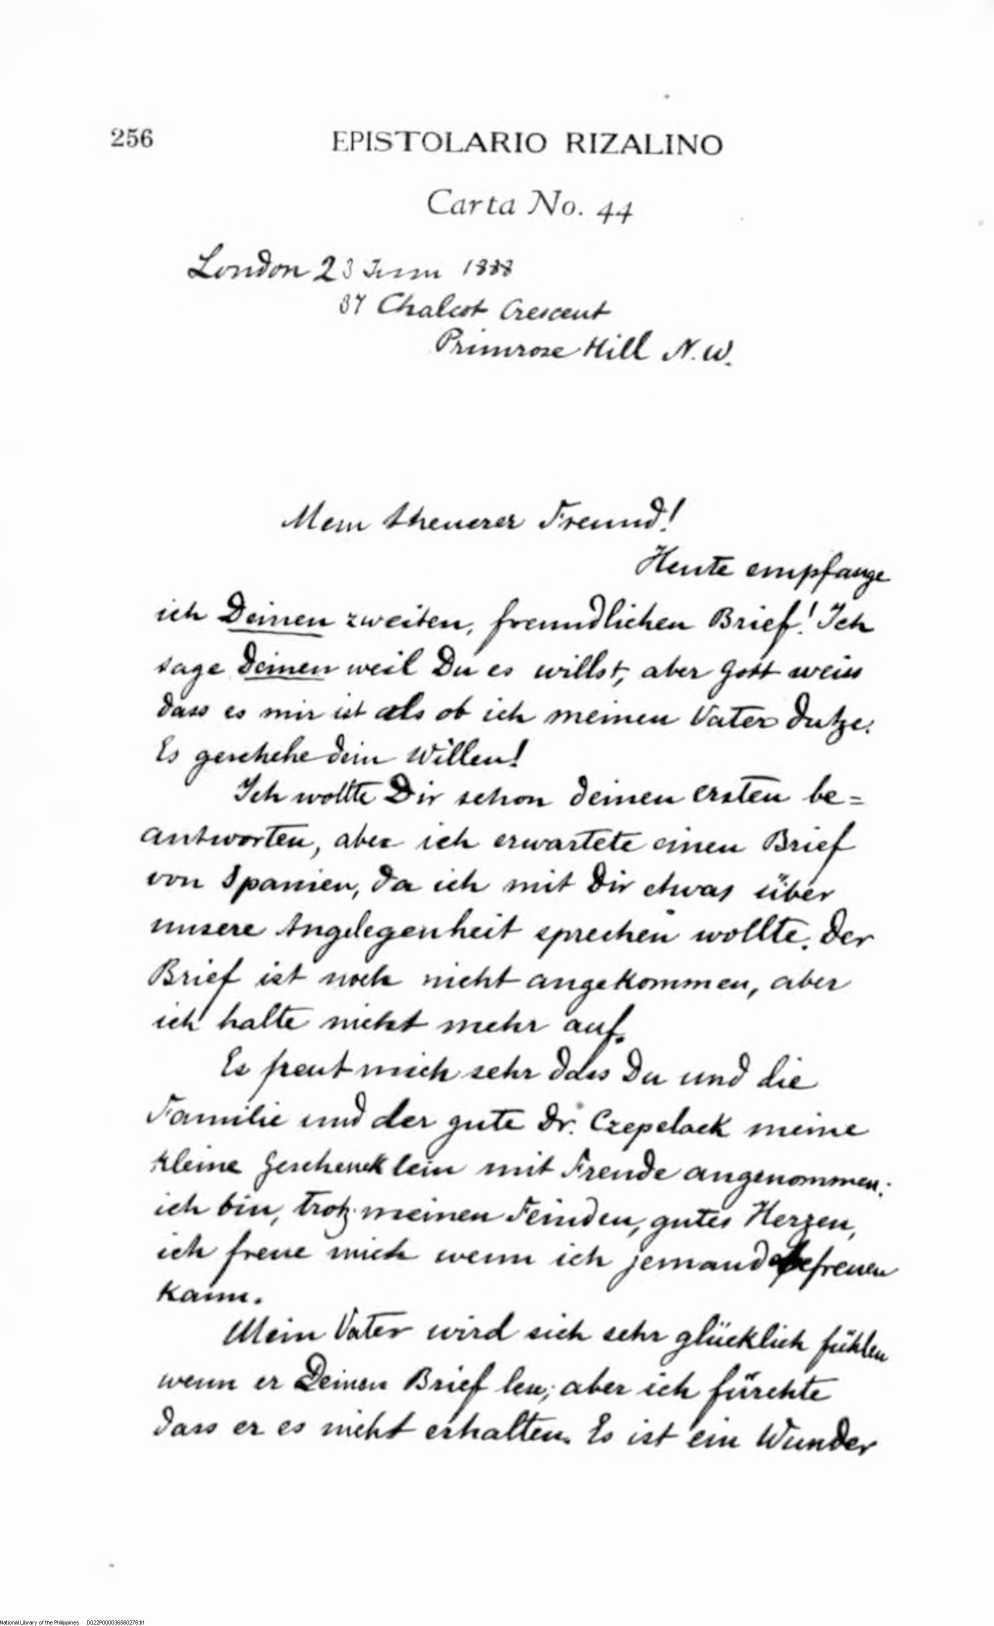 256
EPISTOLARIO RIZALINO
Carta No. 44
London 23 Juni 1888
37 Chalcot Crescent
Primrose Hill N. W.
Mein theuerer Freund!
Heute empfange
ich Deinen zweiten, freundlichen Brief! Ich
sage Deinen weil Du es willst, aber Gott weiss
dass es mir ist als ob ich meinen Vater dutze.
Es geschehe dein Willen!
Ich wollte Dir schon deinen ersten be=
antworten, aber ich erwartete einen Brief
von Spanien, da ich mit Dir etwas über
unsere Angelegenheit sprechen wollte. Der
Brief ist noch nicht angekommen, aber
ich halte nicht mehr auf.
Es freut mich sehr dass Du und die
Familie und der gute Dr. Czepelack meine
kleine Geschenklein mit Freude angenommen:
ich bin, trotz meinen Feinden, gutes Herzen,
ich freue mich wenn ich jemand befreuen
kann.
Mein Vater wird sich sehr glücklich fühlen
wenn er Deinen Brief lese; aber ich fürchte
dass er es nicht erhalten. Es ist ein Wunder
National Library of the Philippines